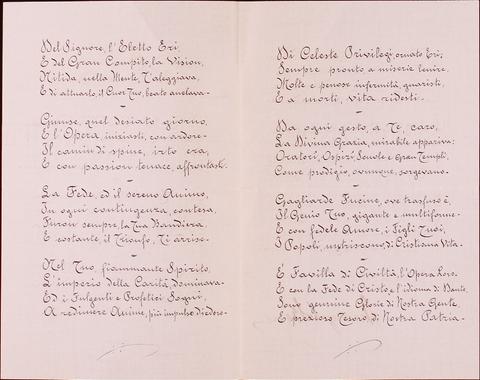 Del Signore, l'Eletto Eri,
E del Gran Compito, la Vision,
Nitida, nella Mente, T'aleggiava,
E di attuarlo, il Cuor Tuo, beato anelava-
Giunse, quel desiato giorno,
E l'Opera, iniziasti, con ardore-
Il camin di spine, irto era,
E con passion tenace, affrontasti.
La Fede, ed il sereno Animo,
In ogni contingenza, contesa,
Furon sempre, la Tua Bandiera,
E costante, il Trionfo, Ti arrise-
Nel Tuo, fiammante Spirito,
L'imperio della Carità, dominava-
Ed i Fulgenti e Profetici Sogni,
A redimere Anime, più impulso diedero-
Di Celeste Privilegi, ornato Eri;
Sempre pronto a miserie lenire,
Molte e penose infermità, guaristi,
E a morti, vita ridesti.
Da ogni gesto, a Te, caro,
La Divina Grazia, mirabile appariva:
Oratori, Ospizi, Scuole e Gran Templi,
Come prodigio, ovunque, sorgevano-
Gagliarde Fucine, ove trasfuso è,
Il Genio Tuo, gigante e multiforme-
E con fedele Amore, i Figli Tuoi,
I Popoli, nutriscono, di Cristiana Vita-
E' Favilla di Civiltà, l'Opera Loro,
E con la Fede di Cristo e l'idioma di Dante,
Sono genuine Glorie di Nostra Gente,
E prezioso Tesoro, di Nostra Patria-